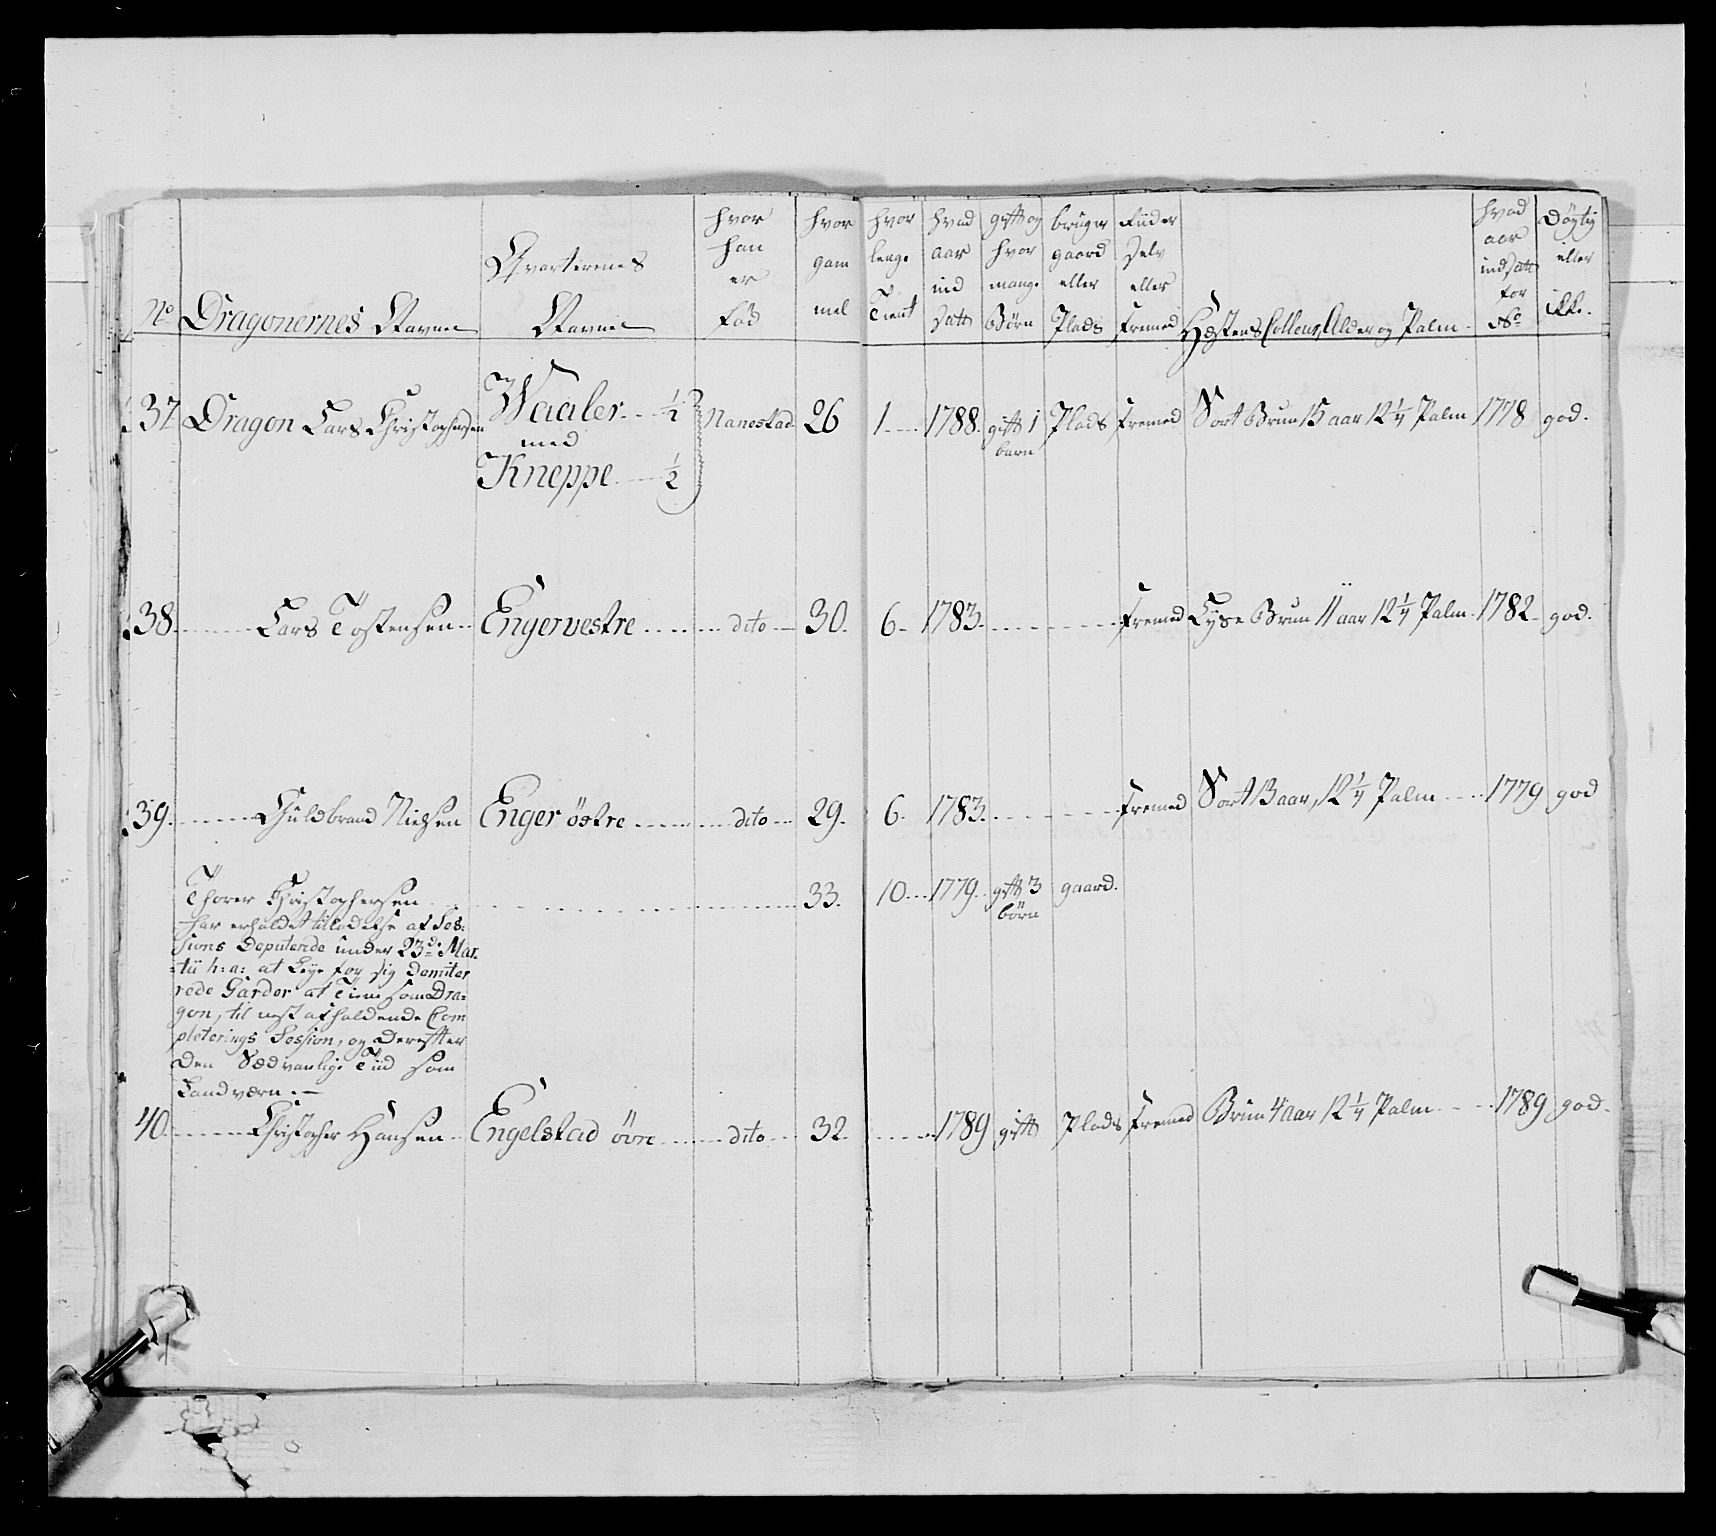 No Dragonernes Navne Qvarterenes Navne hvor han er Fød hvor gam mel hvor lenge Tient hvad aar ind Satt gift og hvor mange Børn bruger gaard eller Plads Fiider Selv eller Fremed Hæstens Colleur, Alder og Palm hvad aar indsatt for No Døgtig eller ikke.
37 Dragon Lars Christophersen Waaler ½ med Kneppe ½ Nanestad 26 1 1788. gift 1 barn Plads Fremed Sort Brun 15 aar 12 ¼ Palm 1778 god.
38. Lars Tostensen Enger vestre dito 30. 6 1783. Fremed Lyse Brun 11 aar 12 ¼ Palm 1782 god.
39. Guldbrand Nielsen Enger östre dito 29. 6. 1783. Fremed Sort 13 aar, 12 ¼ Palm 1779 god
Thorer Christophersen 33. 10 1779. gift 3 börn gaard.
har erholdet tilladelse af Ses:
sions Deputerede under 23de Mar:
tii h: a: at Leye for sig Demite
rede Garder at Tiene som Dra:
gon, til nest afholdende Com
pleterings Session, og Derefter
Den Sædvanlige Tiid som
Landværn. —
40. Christopher Hansen Engelstad övre dito 32. 1789 gift Plads Fremed Brun 4 aar 12 ¼ Palm 1789 god.